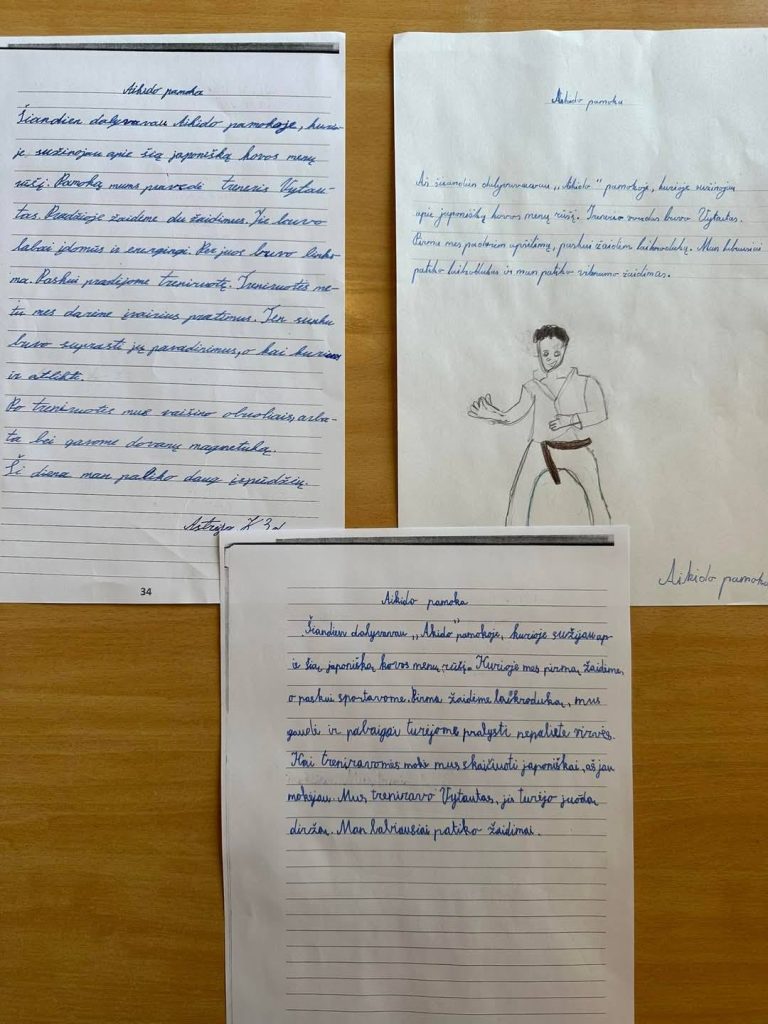 Aikido pamoka
Šiandien dalyvavau Aikido pamokoje, kurio-
je sužinojau apie šią japonišką kovos menų
rūšį. Pamoką mums pravedė treneris Vytau-
tas. Pradžioje žaidėme du žaidimus. Jie buvo
labai įdomūs ir energingi. Per juos buvo links-
ma. Paskui pradėjome treniruotę. Treniruotės me-
tu mes darėme įvairius pratimus. Ten sunku
buvo suprasti jų pavadinimus, o kai kuriuos
ir atlikti.
Po treniruotės mus vaišino obuoliais, arba-
ta bei gavome dovanų magnetuką.
Ši diena man paliko daug įspūdžių.
34
Aikido pamoka
Aš šiandien dalyvavau „Aikido" pamokoje, kurioje sužinojau
apie japonišką kovos menų rūšį. Trenerio vardas buvo Vytautas.
Pirma mes padarėm apšilimą, paskui žaidėm laikroduką. Man labiausiai
patiko laikrodukas ir man patiko vikrumo žaidimas.
Aikido pamoka
Aikido pamoka
Šiandien dalyvavau „Akido" pamokoje, kurioje sužijau ap-
ie šią japonišką kovos menų rūšį. Kurioje mes pirmą žaidėme,
o paskui sportavome. Pirma žaidėme laikroduką, mus
gaudė ir pabaigai turėjome pralįsti nepalietę virvės.
Kai treniravomės mokė mus skaičiuoti japoniškai, aš jau
mokėjau. Mus treniravo Vytautas, jis turėjo juodą
diržą. Man labiausiai patiko žaidimai.